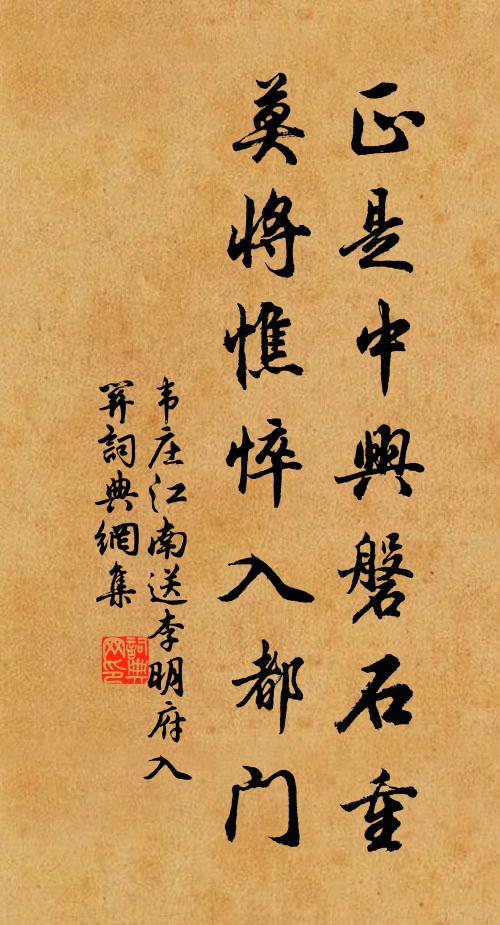 正是中興磐石重
莫將憔悴入都门
韦庄江南送李明府入
関詞典網集
詞典
网印